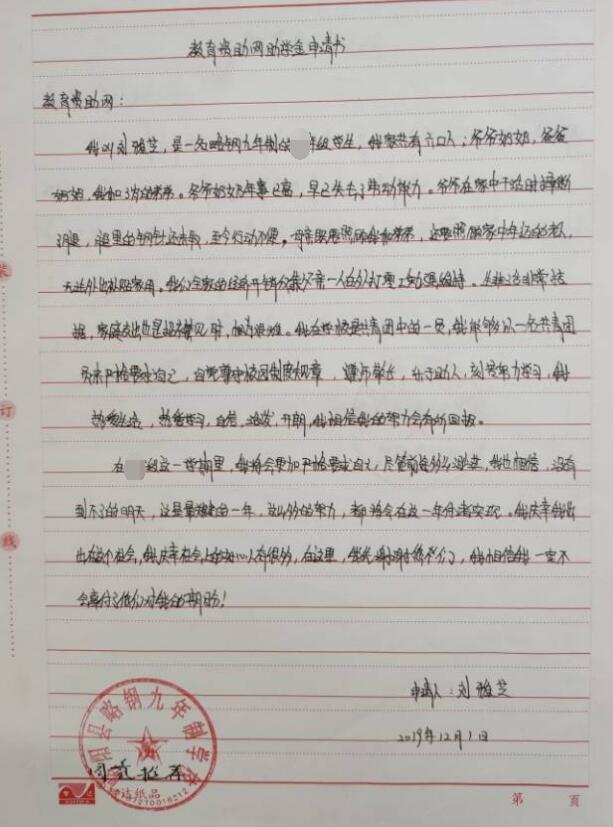 教育资助网助学金申请书
教育资助网：
我叫刘雅芝，是一名略钢九年制的 年级学生，我家共有六口人；爷爷奶奶，爸爸
妈妈，我和3岁的弟弟。爷爷奶奶年事已高，早已失去了劳动能力。爷爷在家中干活时摔断
了腿，腿里的钢针还未取，至今行动不便。母亲既要照顾我和弟弟，还要照顾家中年迈的老人，
无法外出补贴家用。我们全家的经济开销仅靠父亲一人在外打零工勉强维持。生活非常拮
据，家庭支出也是捉襟见肘，颇为艰难。我在学校是共青团中的一员，我能够以一名共青团
员来严格要求自己，自觉遵守校园制度规章，尊师敬长，乐于助人，刻苦努力学习，我
热爱生活，热爱学习，自信，活泼，开朗，我相信我的努力会有所回报。
在 级这一学期里，我将会更加严格要求自己，尽管前途多么艰难，我也相信，没有
到不了的明天，这是最关键的一年，这么多的努力，都将会在这一年后者实现。我庆幸我
出在这个社会，我庆幸社会上的好心人有很多，在这里，我先谢谢爷爷们了，我相信我一定不
会辜负了你们对我的期盼！
申请人：刘雅芝
2019年12月1日
县略钢九年制学校
同意推荐
装
订
线
第 页